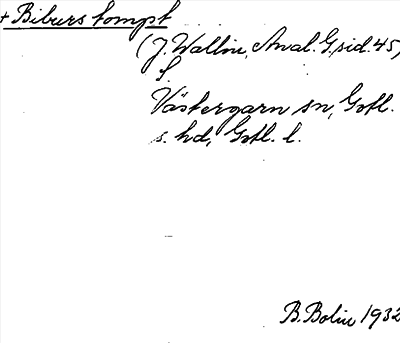 + Biburs tompt
(J. Wallin, Anal. G. sid. 45)
f.
Västergarn sn, Gotl.
s. hd, Gotl. l.
B. Bolin 1932